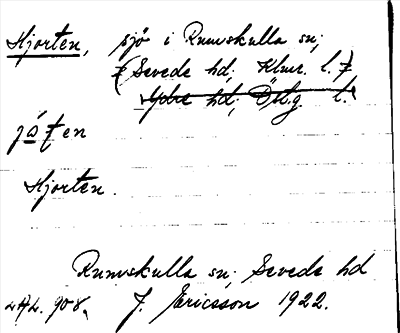 Hjorten, sjö i Rumskulla sn;
(Sevede hd; Klmr. l.)
Ydre hd; Östg. l.
Hjorten.
Rumskulla sn; Sevede hd
J. Ericsson 1922.